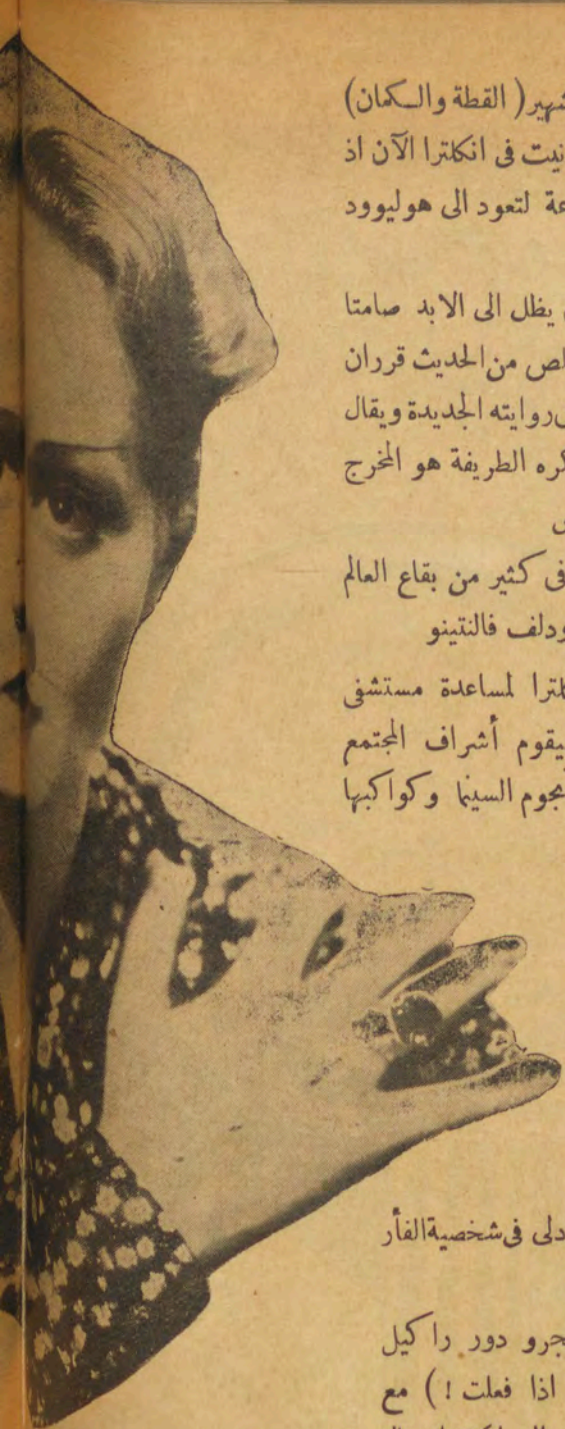 شهير ( القطة والكمان )
نيت فى انكلترا الآن اذ
عة لتعود الى هوليوود
يظل الى الابد صامتا
لص من الحديث قرر ان
روايته الجديدة ويقال
كره الطريفة هو المخرج
فى كثير من بقاع العالم
ودلف فالنتينو
لمترا لمساعدة مستشفى
يقوم أشراف المجتمع
نجوم السينما وكواكبها
دلى فى شخصية الفأر
جرو دور راكيل
اذا فعلت ! ) مع